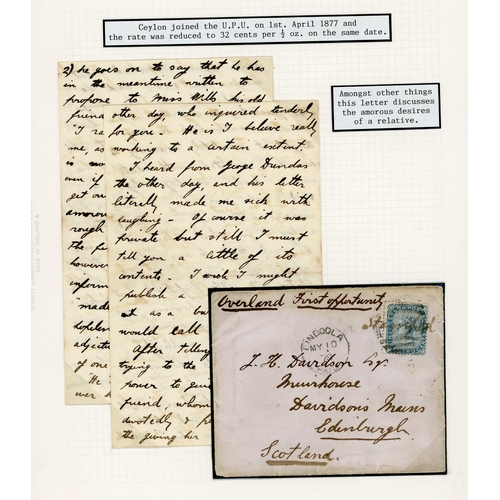 Ceylon joined the U.P.U. on 1st. April 1877 and
the rate was reduced to 32 cents per ½ oz. on the same date.
Amongst other things
this letter discusses
the amorous desires
of a relative.
2) he goes on to say that he has
in the meantime written to
propose to Miss Wills his old
friend
"I
me, as
is
even if
get on
amorou
rough
The
however
inform
"made
hopeless
adjecti
of one
"He
ever
other day, who inquired tenderly
for you — He is I believe really
working to a certain extent.
I heard from George Dundas
the other day, and his letter
literally made me sick with
laughing — Of course it was
private but still I must
tell you a little of its
contents — I wish I might
publish a
as a
would call
After telling
trying to the
power to give
friend, whom
devotedly &
the giving her
Overland First opportunity
LINDOOLA
MY 10
Stamped
J. H. Davidson Esq.
Muirhouse
Davidsons Mains
Edinburgh
Scotland.